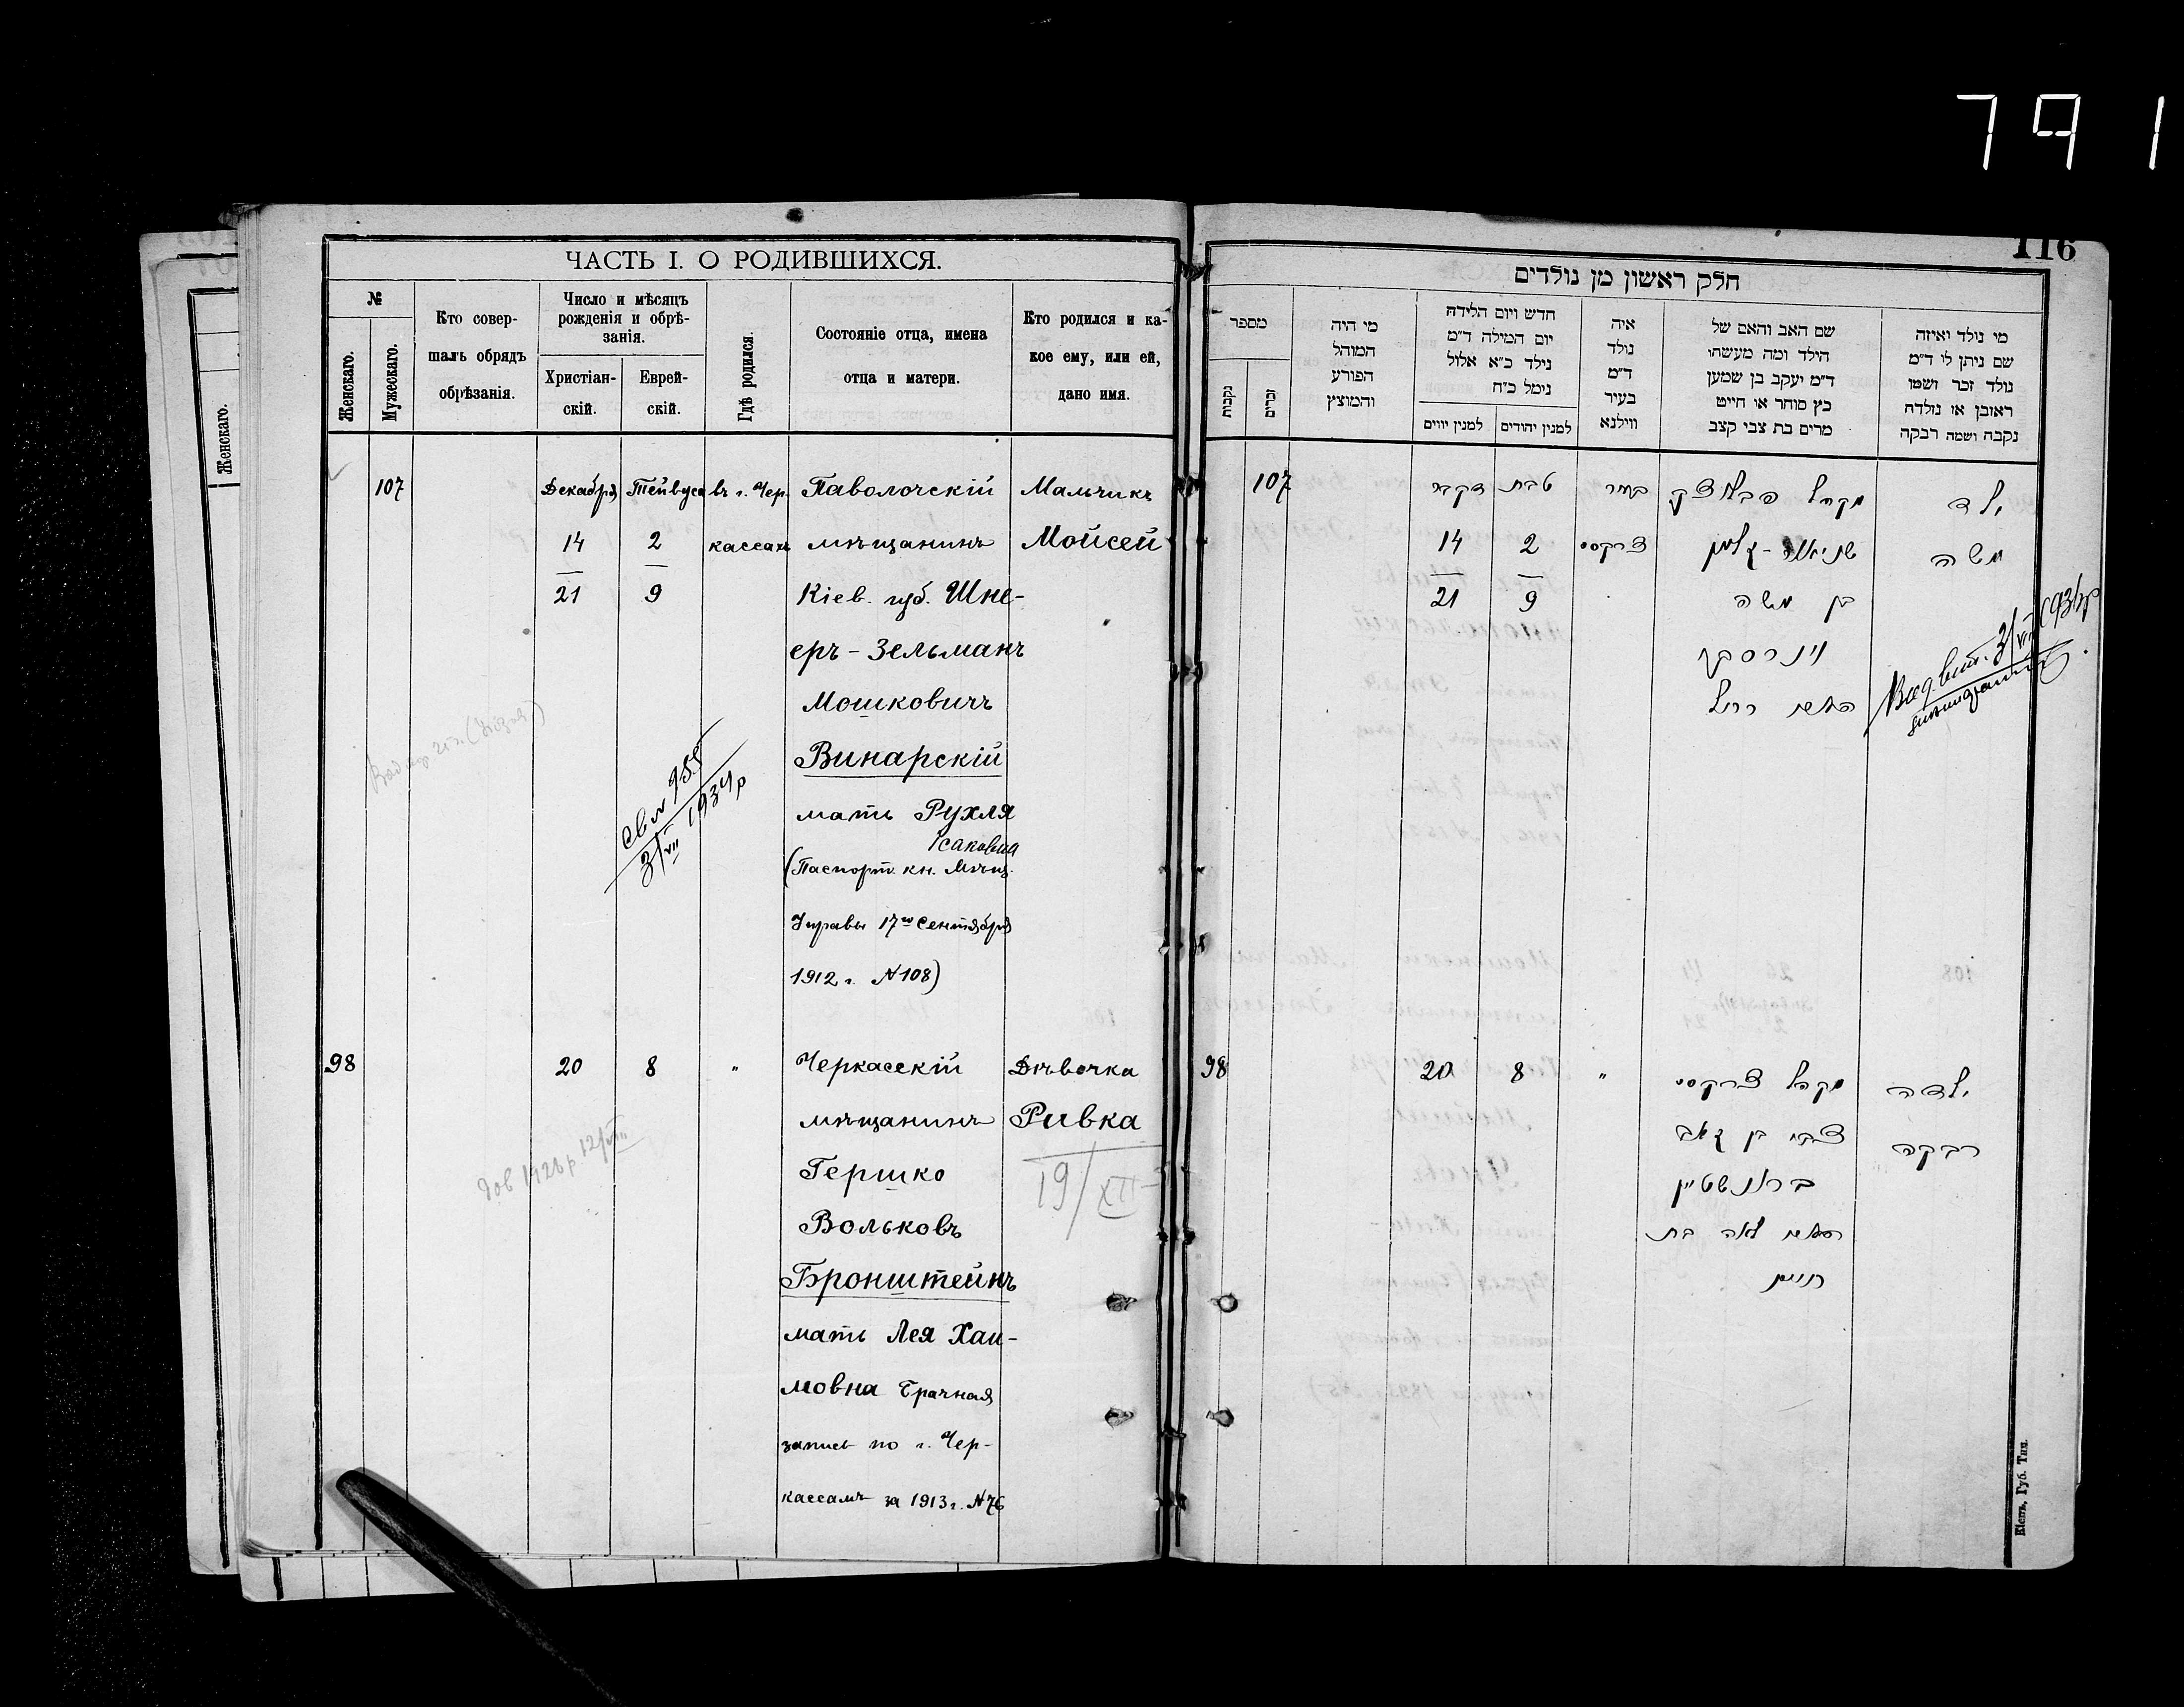 791
ЧАСТЬ I. О РОДИВШИХСЯ.
№
Женскаго.
Мужескаго.
Кто совер-
шалъ обрядъ
обрѣзанія.
Число и мѣсяцъ
рожденія и обрѣ-
занія.
Христіан-
скій.
Еврей-
скій.
Гдѣ родился.
Состояніе отца, имена
отца и матери.
Кто родился и ка-
кое ему, или ей,
дано имя.
Женскаго.
107
Декабря
14
21
Тейвуса
2
9
въ г. Чер-
кассахъ
Паволочскій
мѣщанинъ
Кіев. губ. Шне-
еръ - Зельманъ
Мошковичъ
Винарскій
мать Рухля
Исаковна
(Паспорт. кн. Мѣщ.
Управы 17го Сентября
1912 г. №108)
Мальчикъ
Мойсей
3/VII 1934р
98
20
8
"
Черкасскій
мѣщанинъ
Гершко
Вольковъ
Бронштейнъ
мать Лея Хаи-
мовна Брачная
запись по г. Чер-
кассамъ за 1913 г. №76
Дѣвочка
Ривка
19/XII
1926р. 12/VIII
116
חלק ראשון מן נולדים
מספר
נקבות
זכרים
מי היה
המוהל
הפורע
והמוצץ
חדש ויום הלידה
יום המילה ד״מ
נילד כ״א אלול
נימל כ״ח
למנין יווים
למנין יהודים
איה
נולד
ד״מ
בעיר
ווילנא
שם האב והאם של
הילד ומה מעשהו
ד״מ יעקב בן שמען
כץ סוחר או חייט
מרים בת צבי קצב
מי נולד ואיזה
שם ניתן לו ד״מ
נולד זכר ושמו
ראובן או נולדה
נקבה ושמה רבקה
107
דקבר
14
21
טבת
2
9
בעיר
צרקסי
מקהל פבלוצק
שניאור-זלמן
בן משה
וינרסקי
האשה רחל
ילד
משה
98
20
8
"
מקהל צרקסי
צבי בן זאב
בראנשטיין
האשה לאה בת
חיים
ילדה
רבקה
Кіевъ, Губ. Тип.